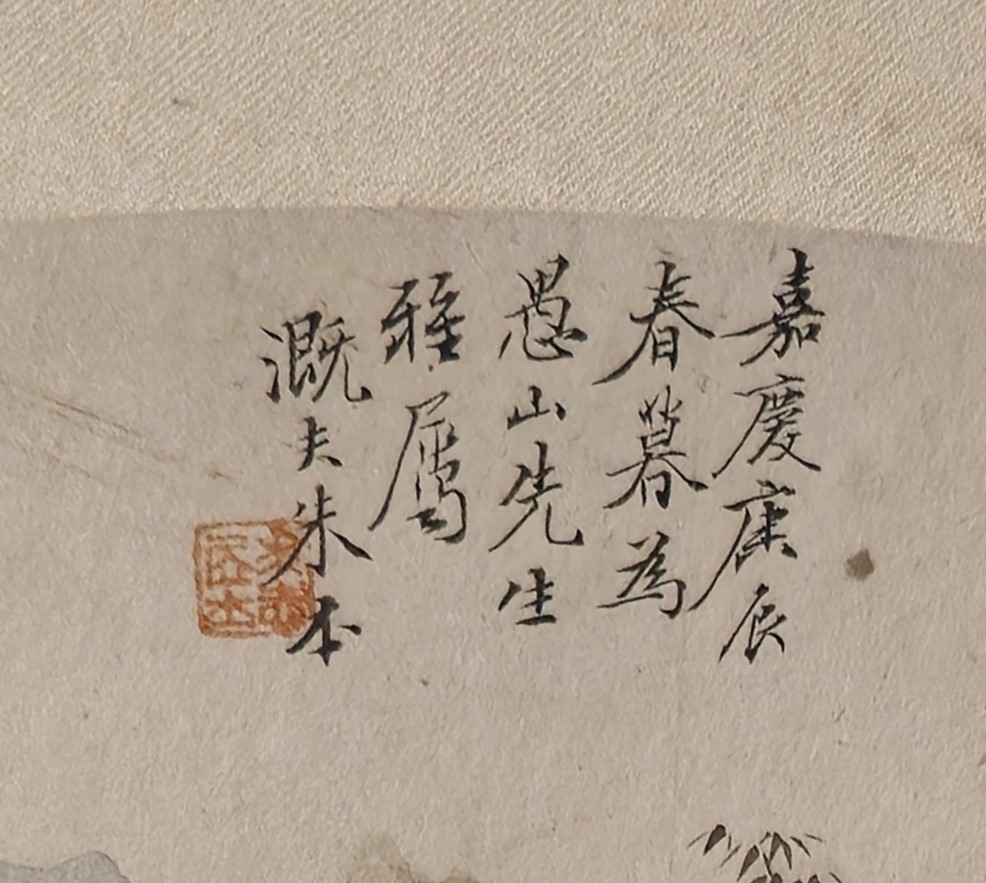 嘉慶庚辰
春暮為
愚山先生
雅屬
溉夫朱本